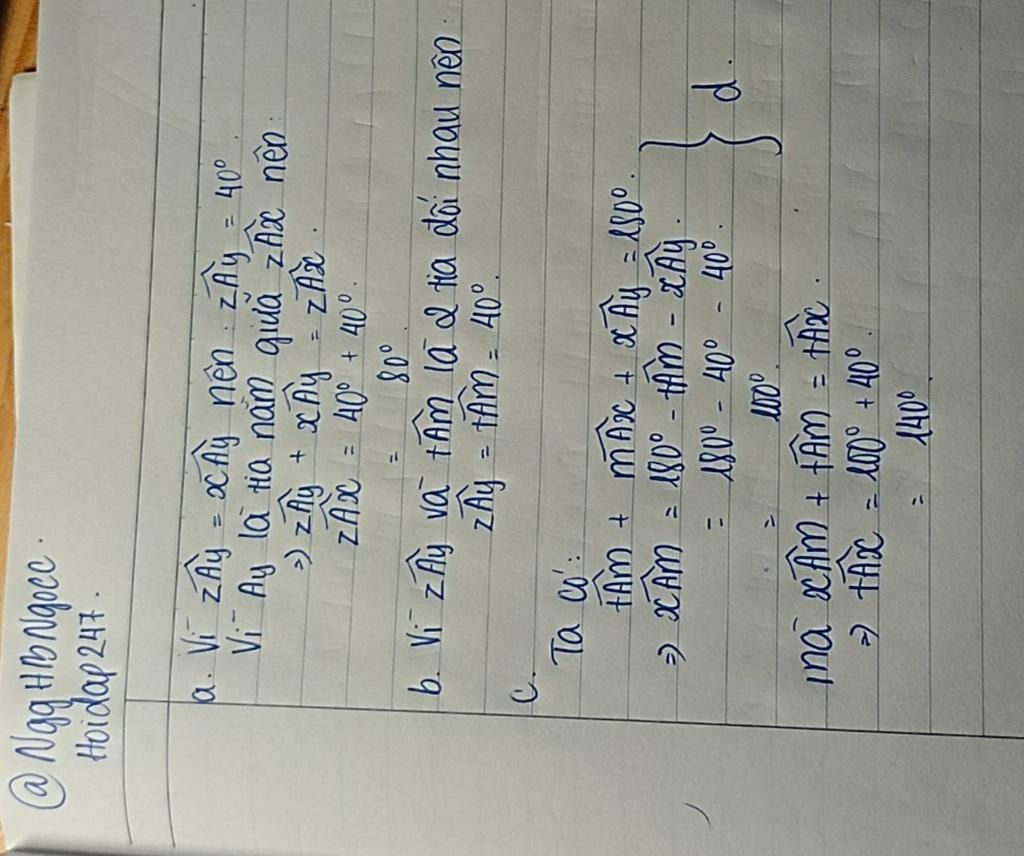 @NgqHbNgocc.
Hoidap247.
a. Vì zÂy = xÂy nên: zÂy = 40°.
Vì Ay là tia nằm giữa zÂx nên:
=) zÂy + xÂy = zÂx.
zÂx = 40° + 40°.
= 80°.
b. Vì zÂy và tÂm là 2 tia đối nhau nên:
zÂy = tÂm = 40°.
c.
Ta có:
tÂm + mÂx + xÂy = 180°.
=) xÂm = 180° - tÂm - xÂy.
= 180° - 40° - 40°.
= 100°.
} d.
mà xÂm + tÂm = tÂx.
=) tÂx = 100° + 40°.
= 140°